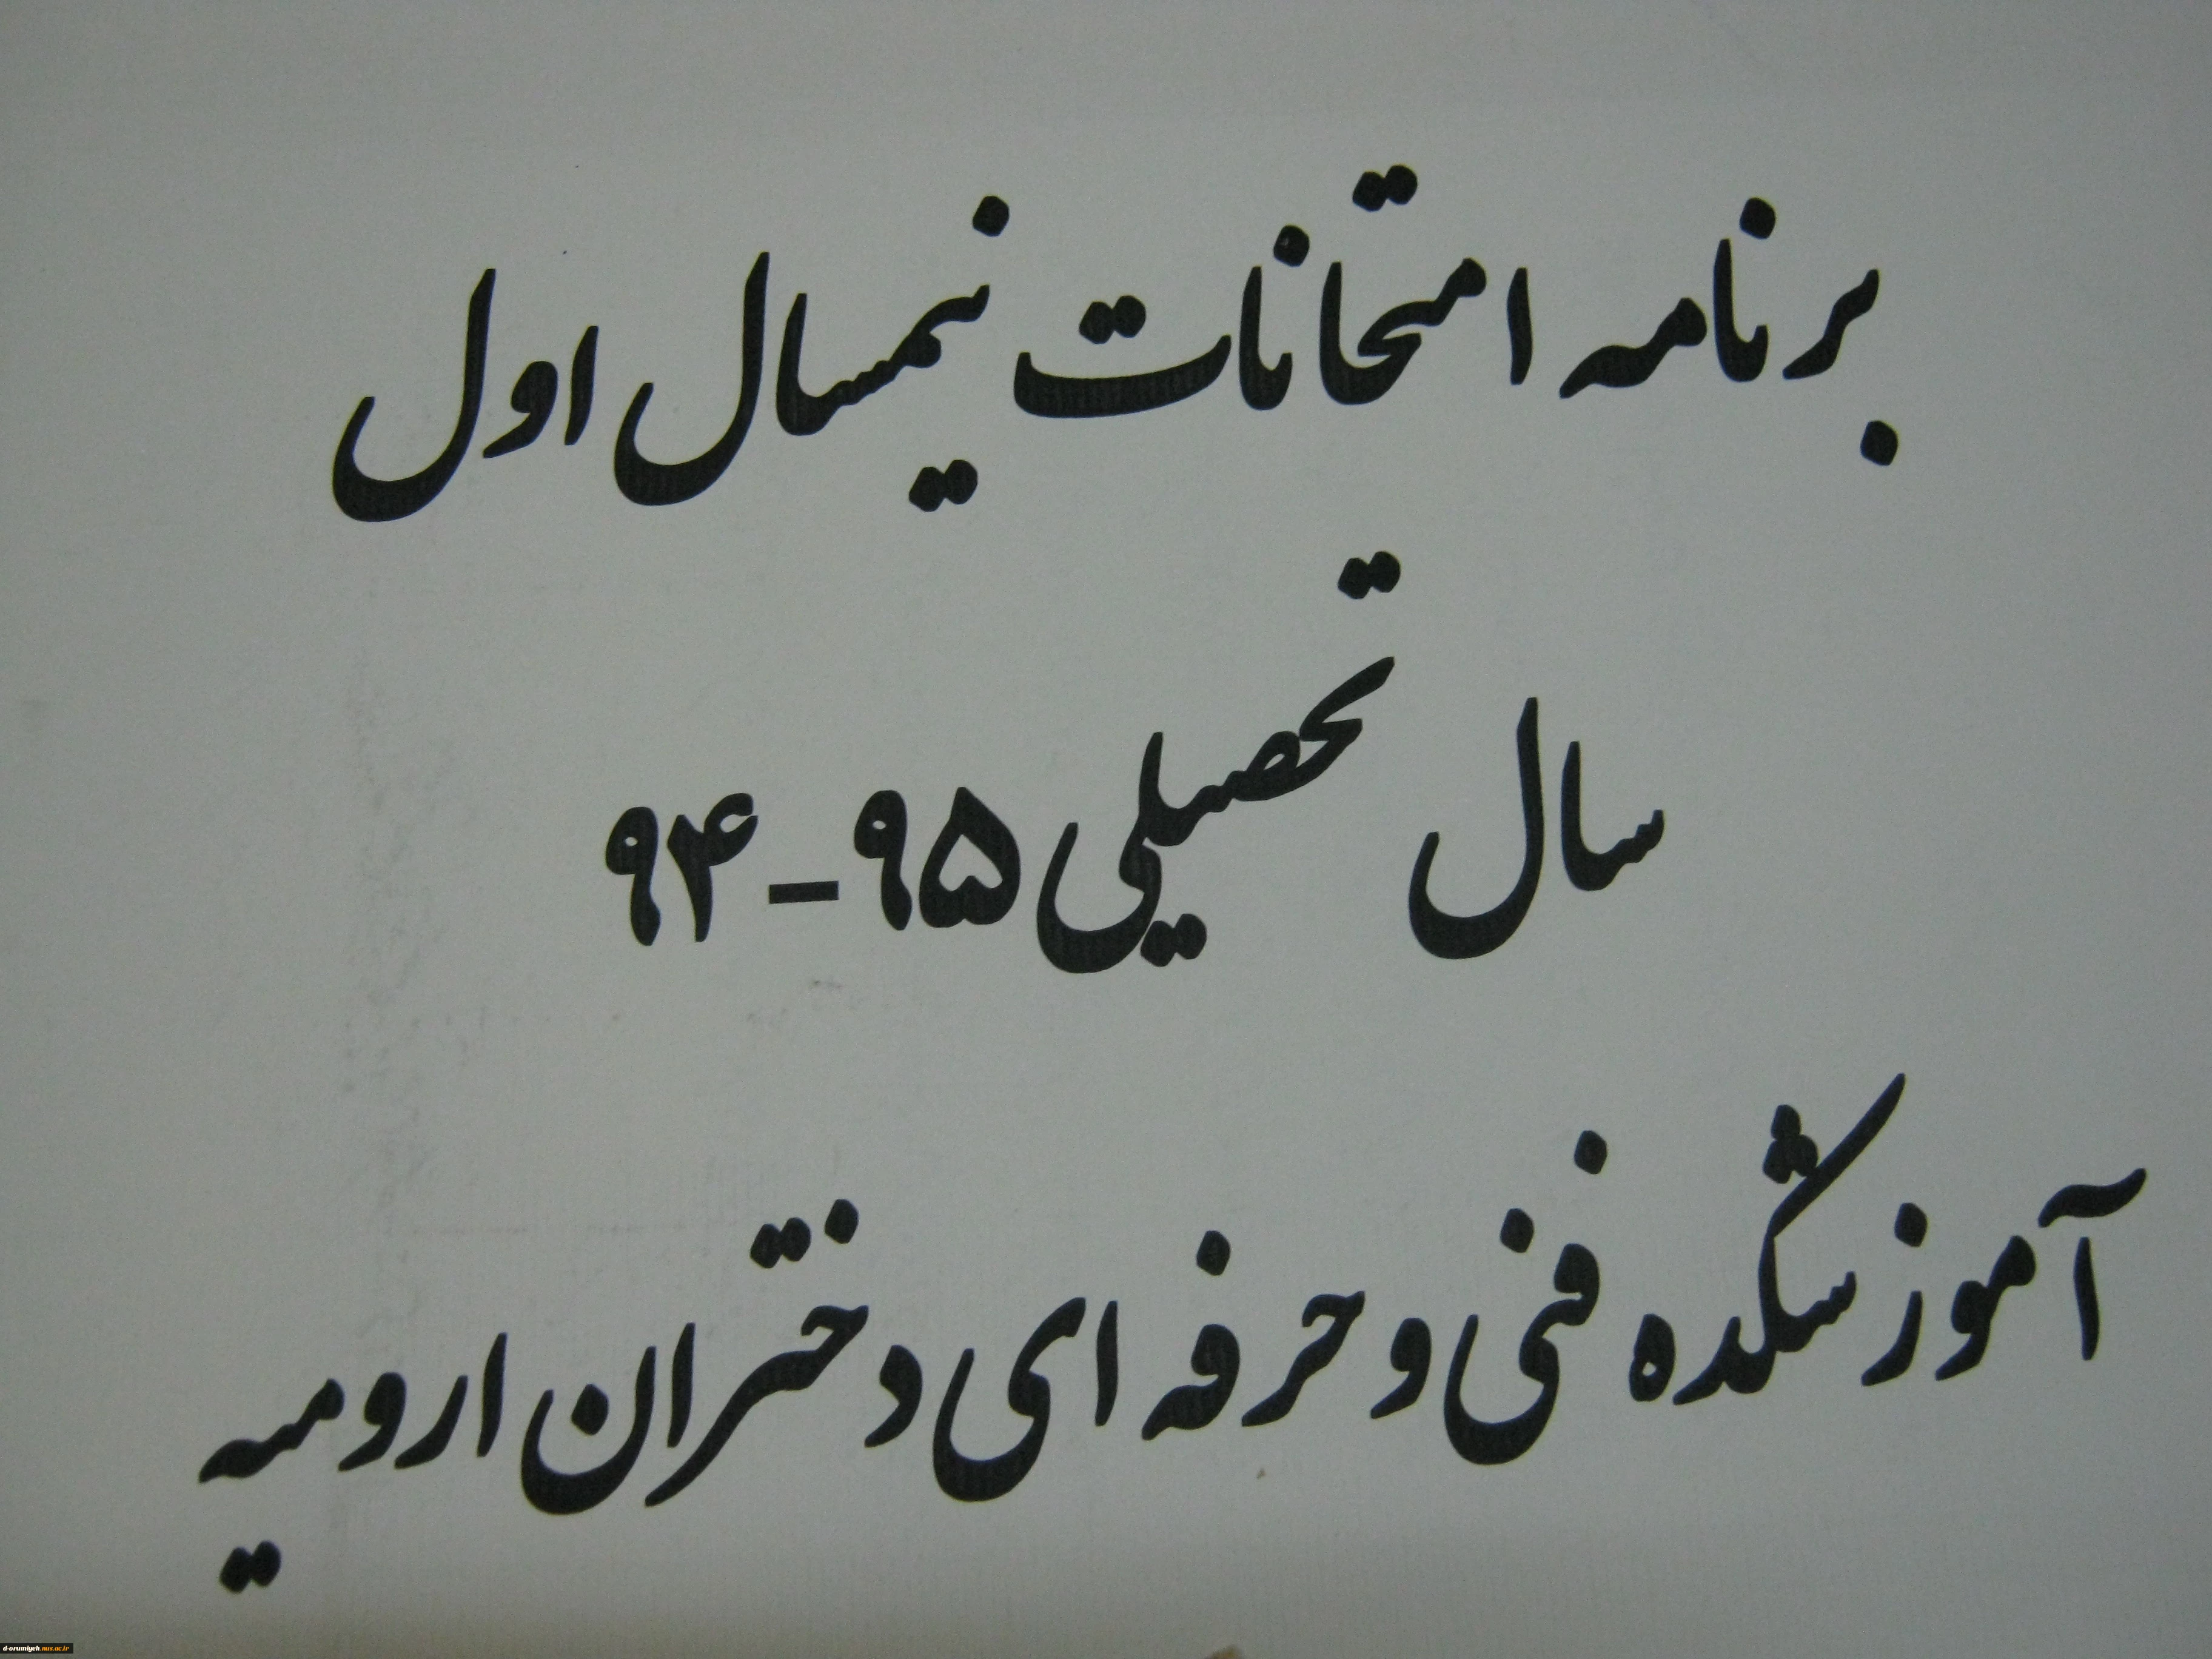 برنامه امتحانات نیمسال اول
سال تحصیلی ۹۵-۹۴
آموزشکده فنی و حرفه ای دختران ارومیه
d-orumiyeh.nus.ac.ir